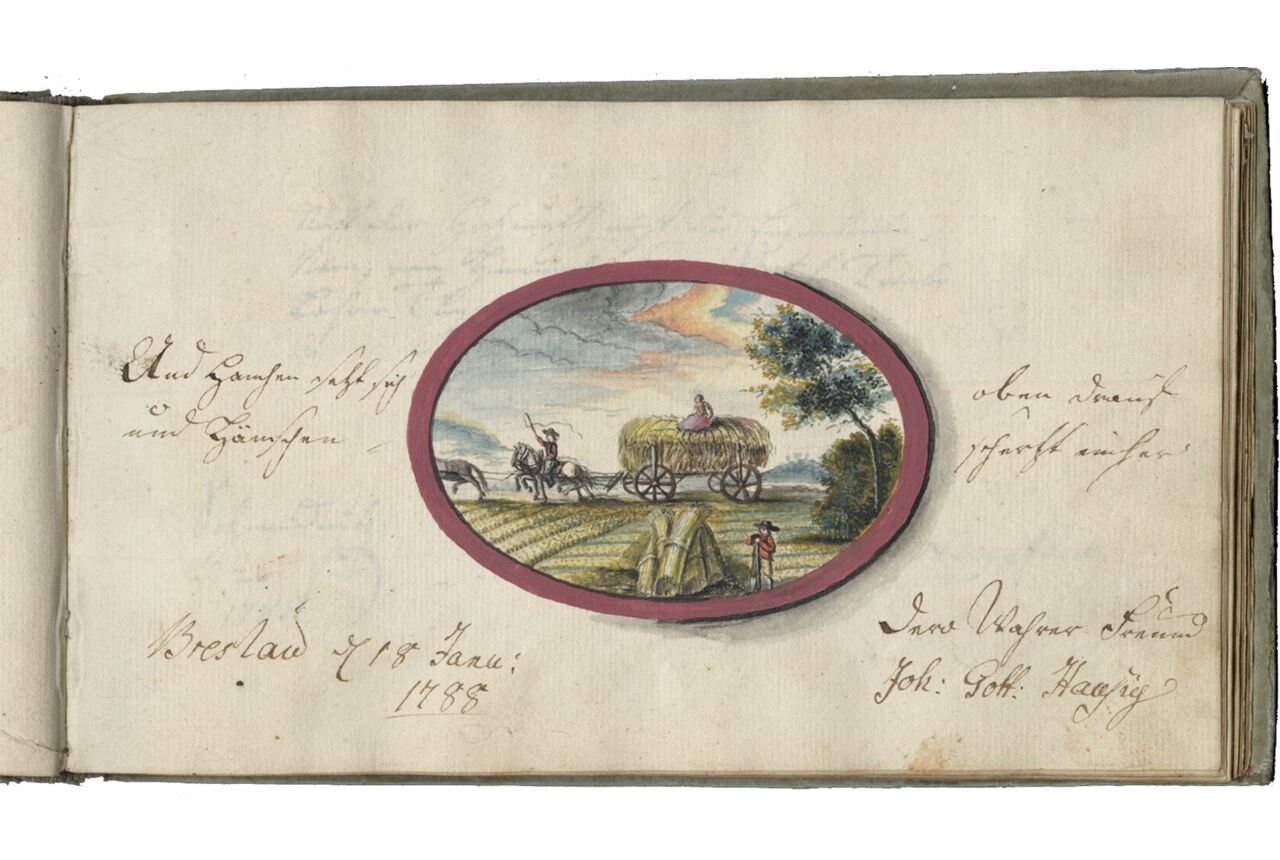 Und Hanchen setzt sich oben drauf
und Hänschen schertzt einher
Breslau d 18 Janu:
1788
Dero Wahrer Freund
Joh: Gott: